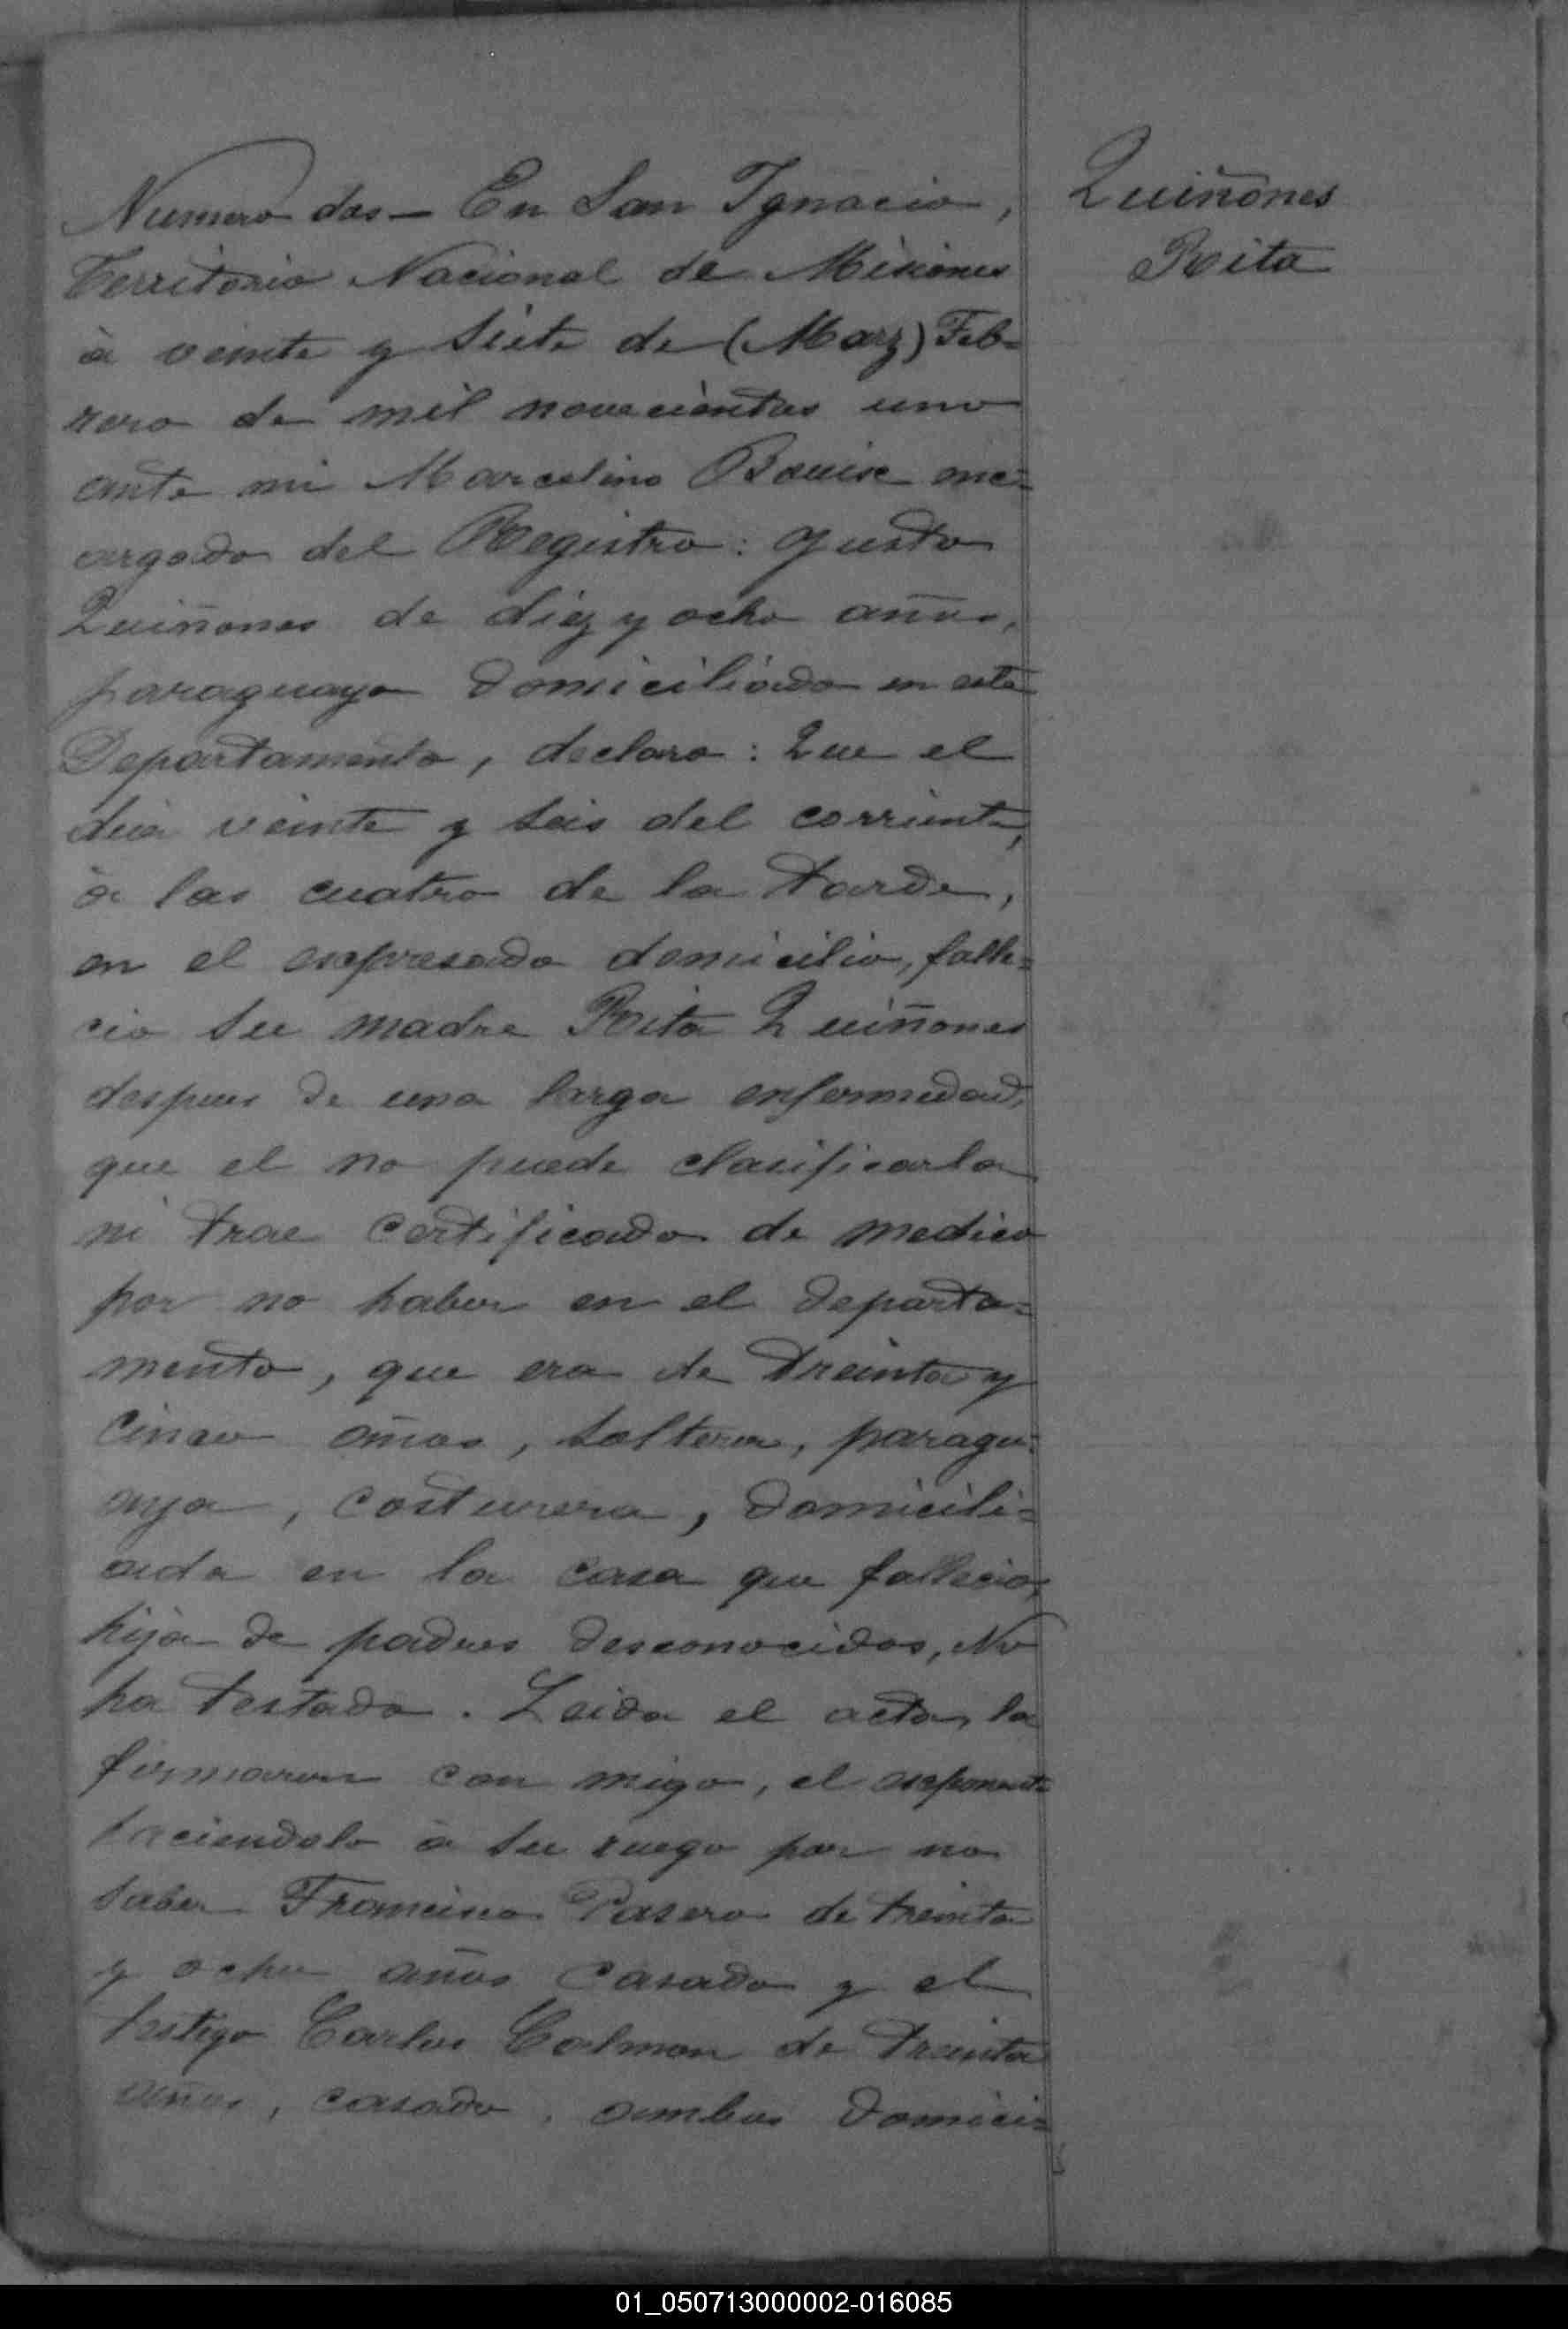 Quiñones
Rita
Numero dos — En San Ignacio,
Territorio Nacional de Misiones
à veinte y siete de (Marz) Feb=
rero de mil novecientos uno
ante mi Marcelino Bouix enc=
argado del Registro: Justo
Quiñones de diez y ocho años,
paraguayo domiciliado en este
Departamento, declaro: Que el
dia veinte y seis del corriente,
à las cuatro de la tarde,
en el espresado domicilio, falle=
cio su madre Rita Quiñones
despues de una larga enfermedad,
que el no puede clasificarla
ni trae certificado de medico
por no haber en el departa=
mento, que era de treinta y
cinco años, soltera, paragu=
aya, costurera, domicili=
ada en la casa que fallecio,
hija de padres desconocidos, No
ha testado. Leida el acta, la
firmaron con migo, el esponente
haciendolo à su ruego por no
saber Francisco Pasero de treinta
y ocho años casado y el
testigo Carlos Colman de treinta
años, casado, ambos domici=
01_050713000002-016085